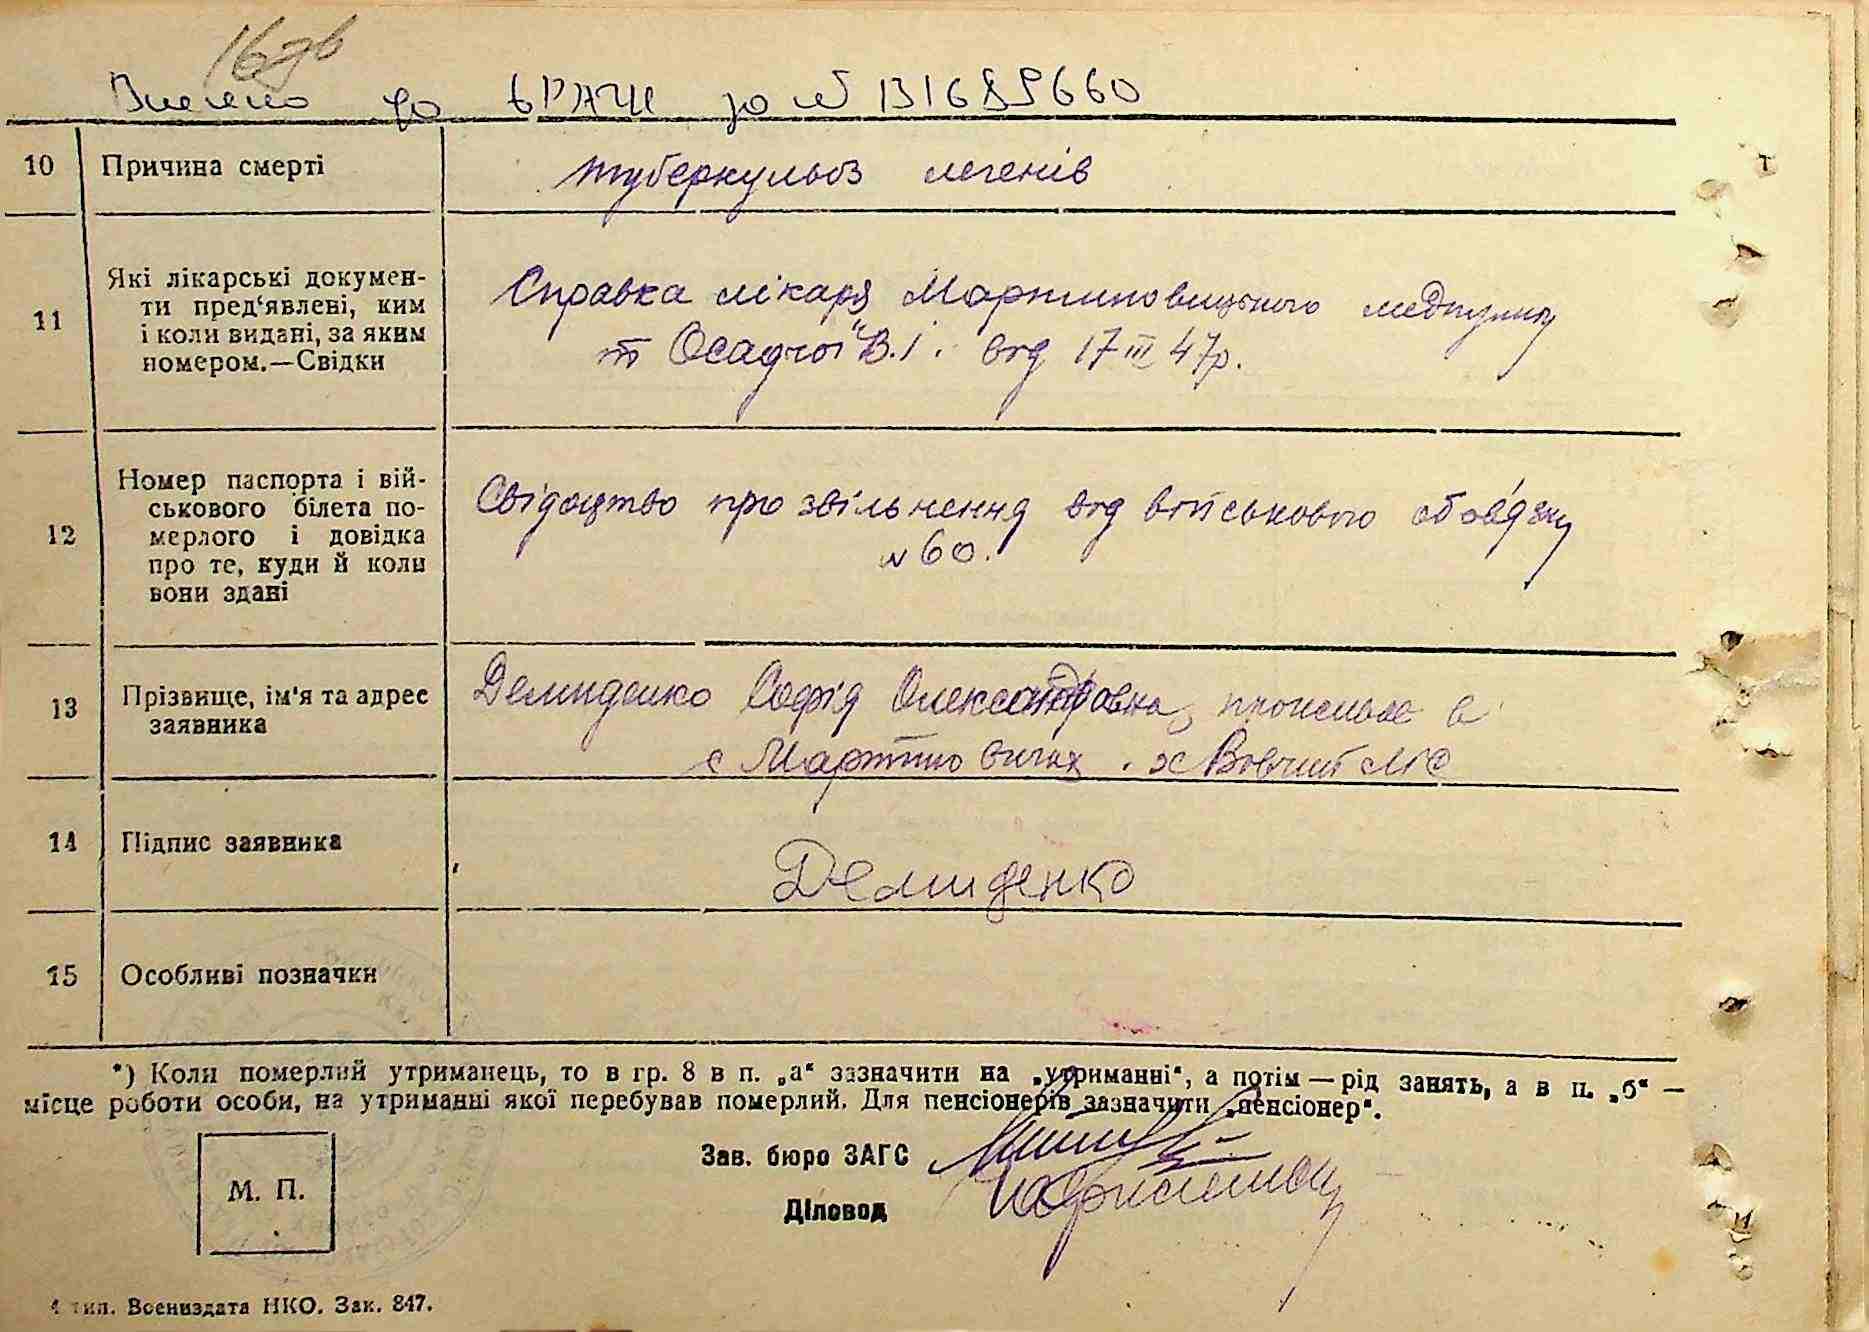 16зв
Внесено до ДРАЦС за № 131685660
10 Причина смерті
туберкульоз легенів
11 Які лікарські докумен-
ти пред‘явлені, ким
і коли видані, за яким
номером.—Свідки
Справка лікаря Мартиновицького медпункту
т Осадчої В.І. від 17 III 47р.
12 Номер паспорта і вій-
ськового білета по-
мерлого і довідка
про те, куди й коли
вони здані
Свідоцтво про звільнення від військового обов'язку
№ 60.
13 Прізвище, ім'я та адрес
заявника
Демиденко Софія Олександровна, проживає в
с Мартиновичах . х Вовчий Ліс
14 Підпис заявника
Демиденко
15 Особливі позначки
*) Коли померлий утриманець, то в гр. 8 в п. „а“ зазначити на „утриманні“, а потім — рід занять, а в п. „б“ —
місце роботи особи, на утриманні якої перебував померлий. Для пенсіонерів зазначити „пенсіонер“.
Зав. бюро ЗАГС
Діловод
М. П.
4 тип. Воениздата НКО. Зак. 847.